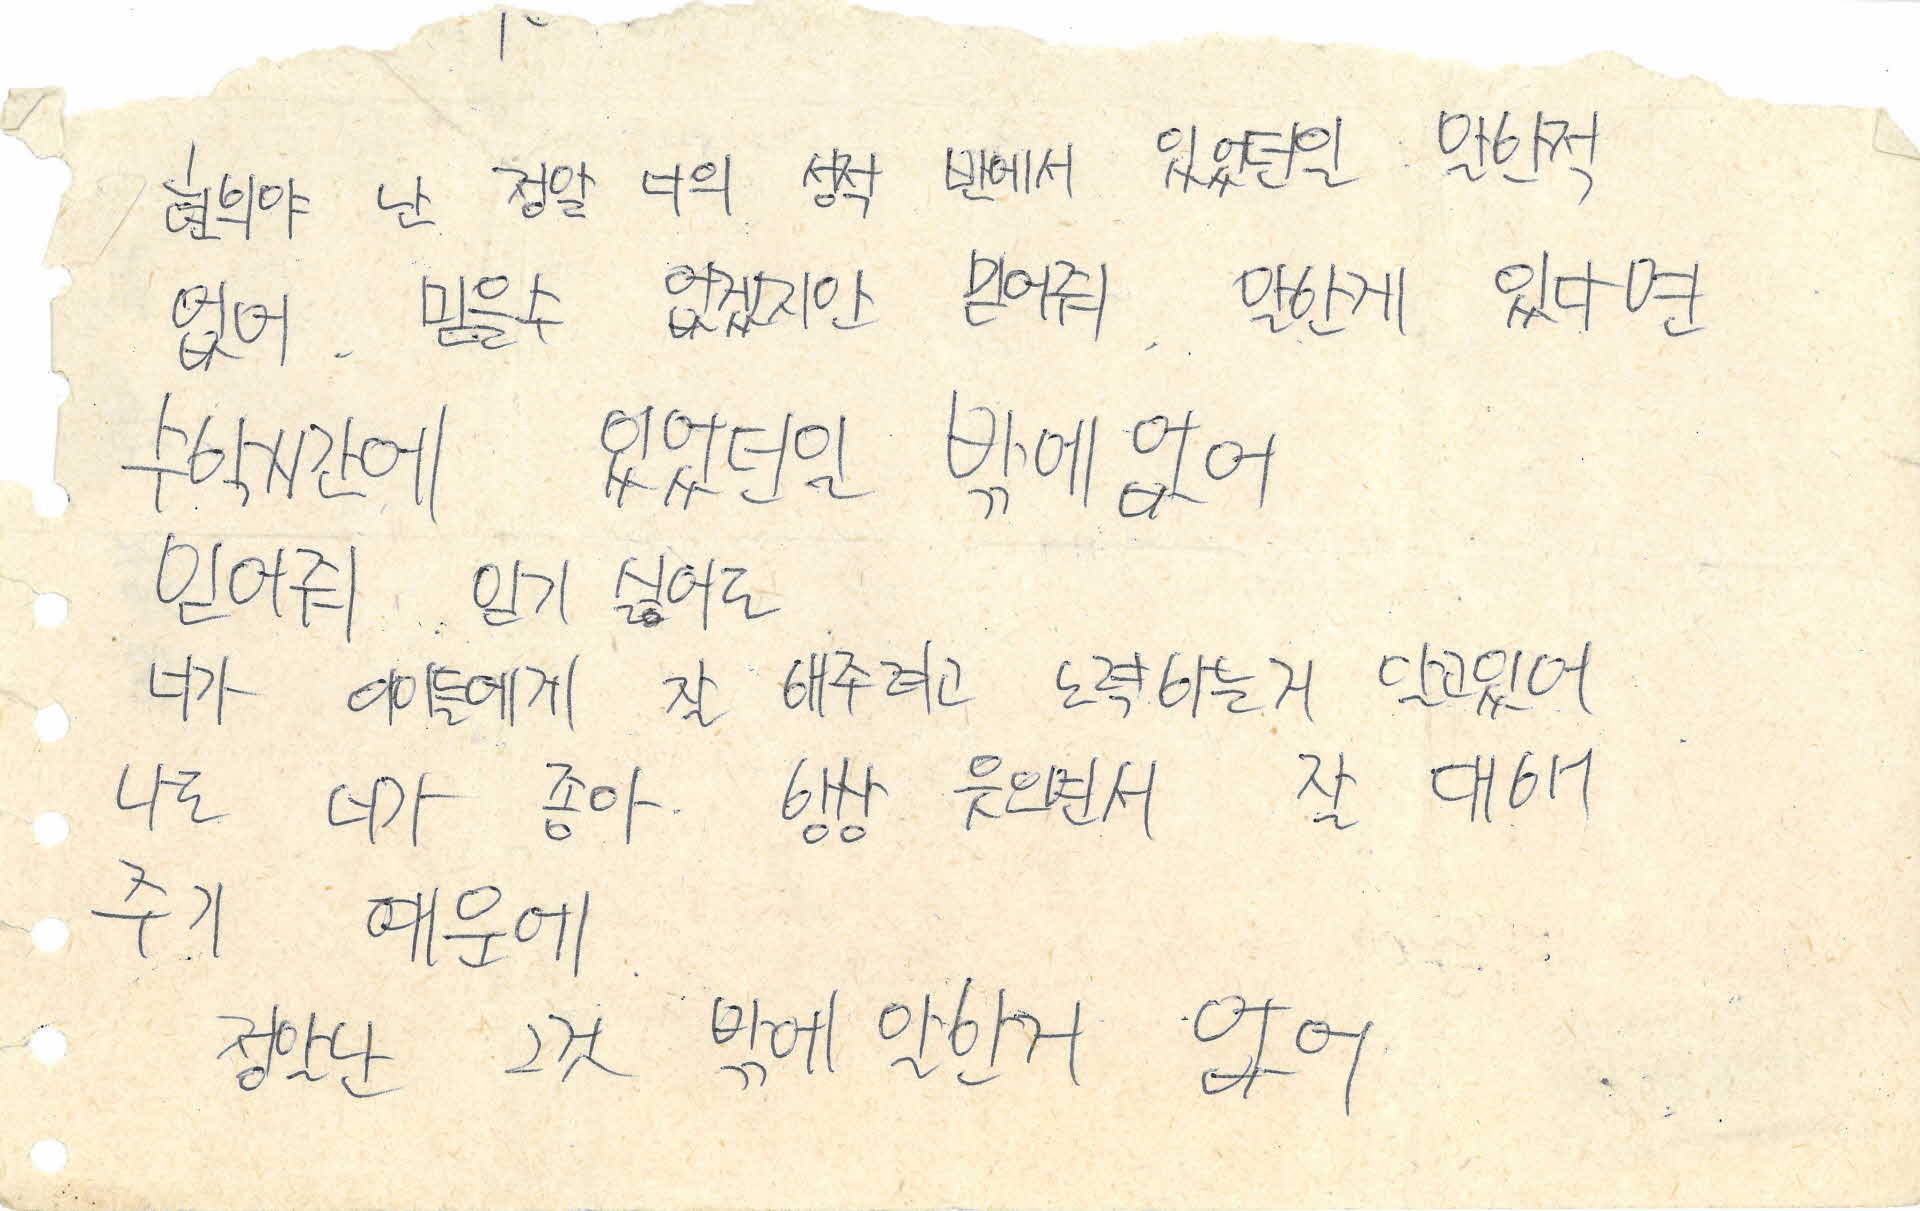 현의야 난 정말 너의 성적 반에서 있었던일 말한적
없어. 믿을수 없겠지만 믿어줘. 말한게 있다면
수학시간에 있었던일 밖에 없어
믿어줘.. 믿기 싫어도
너가 아이들에게 잘 해주려고 노력하는거 알고있어
나도 너가 좋아. 항상 웃으면서 잘 대해
주기 때문에.
정말난 그것 밖에 말한거 없어